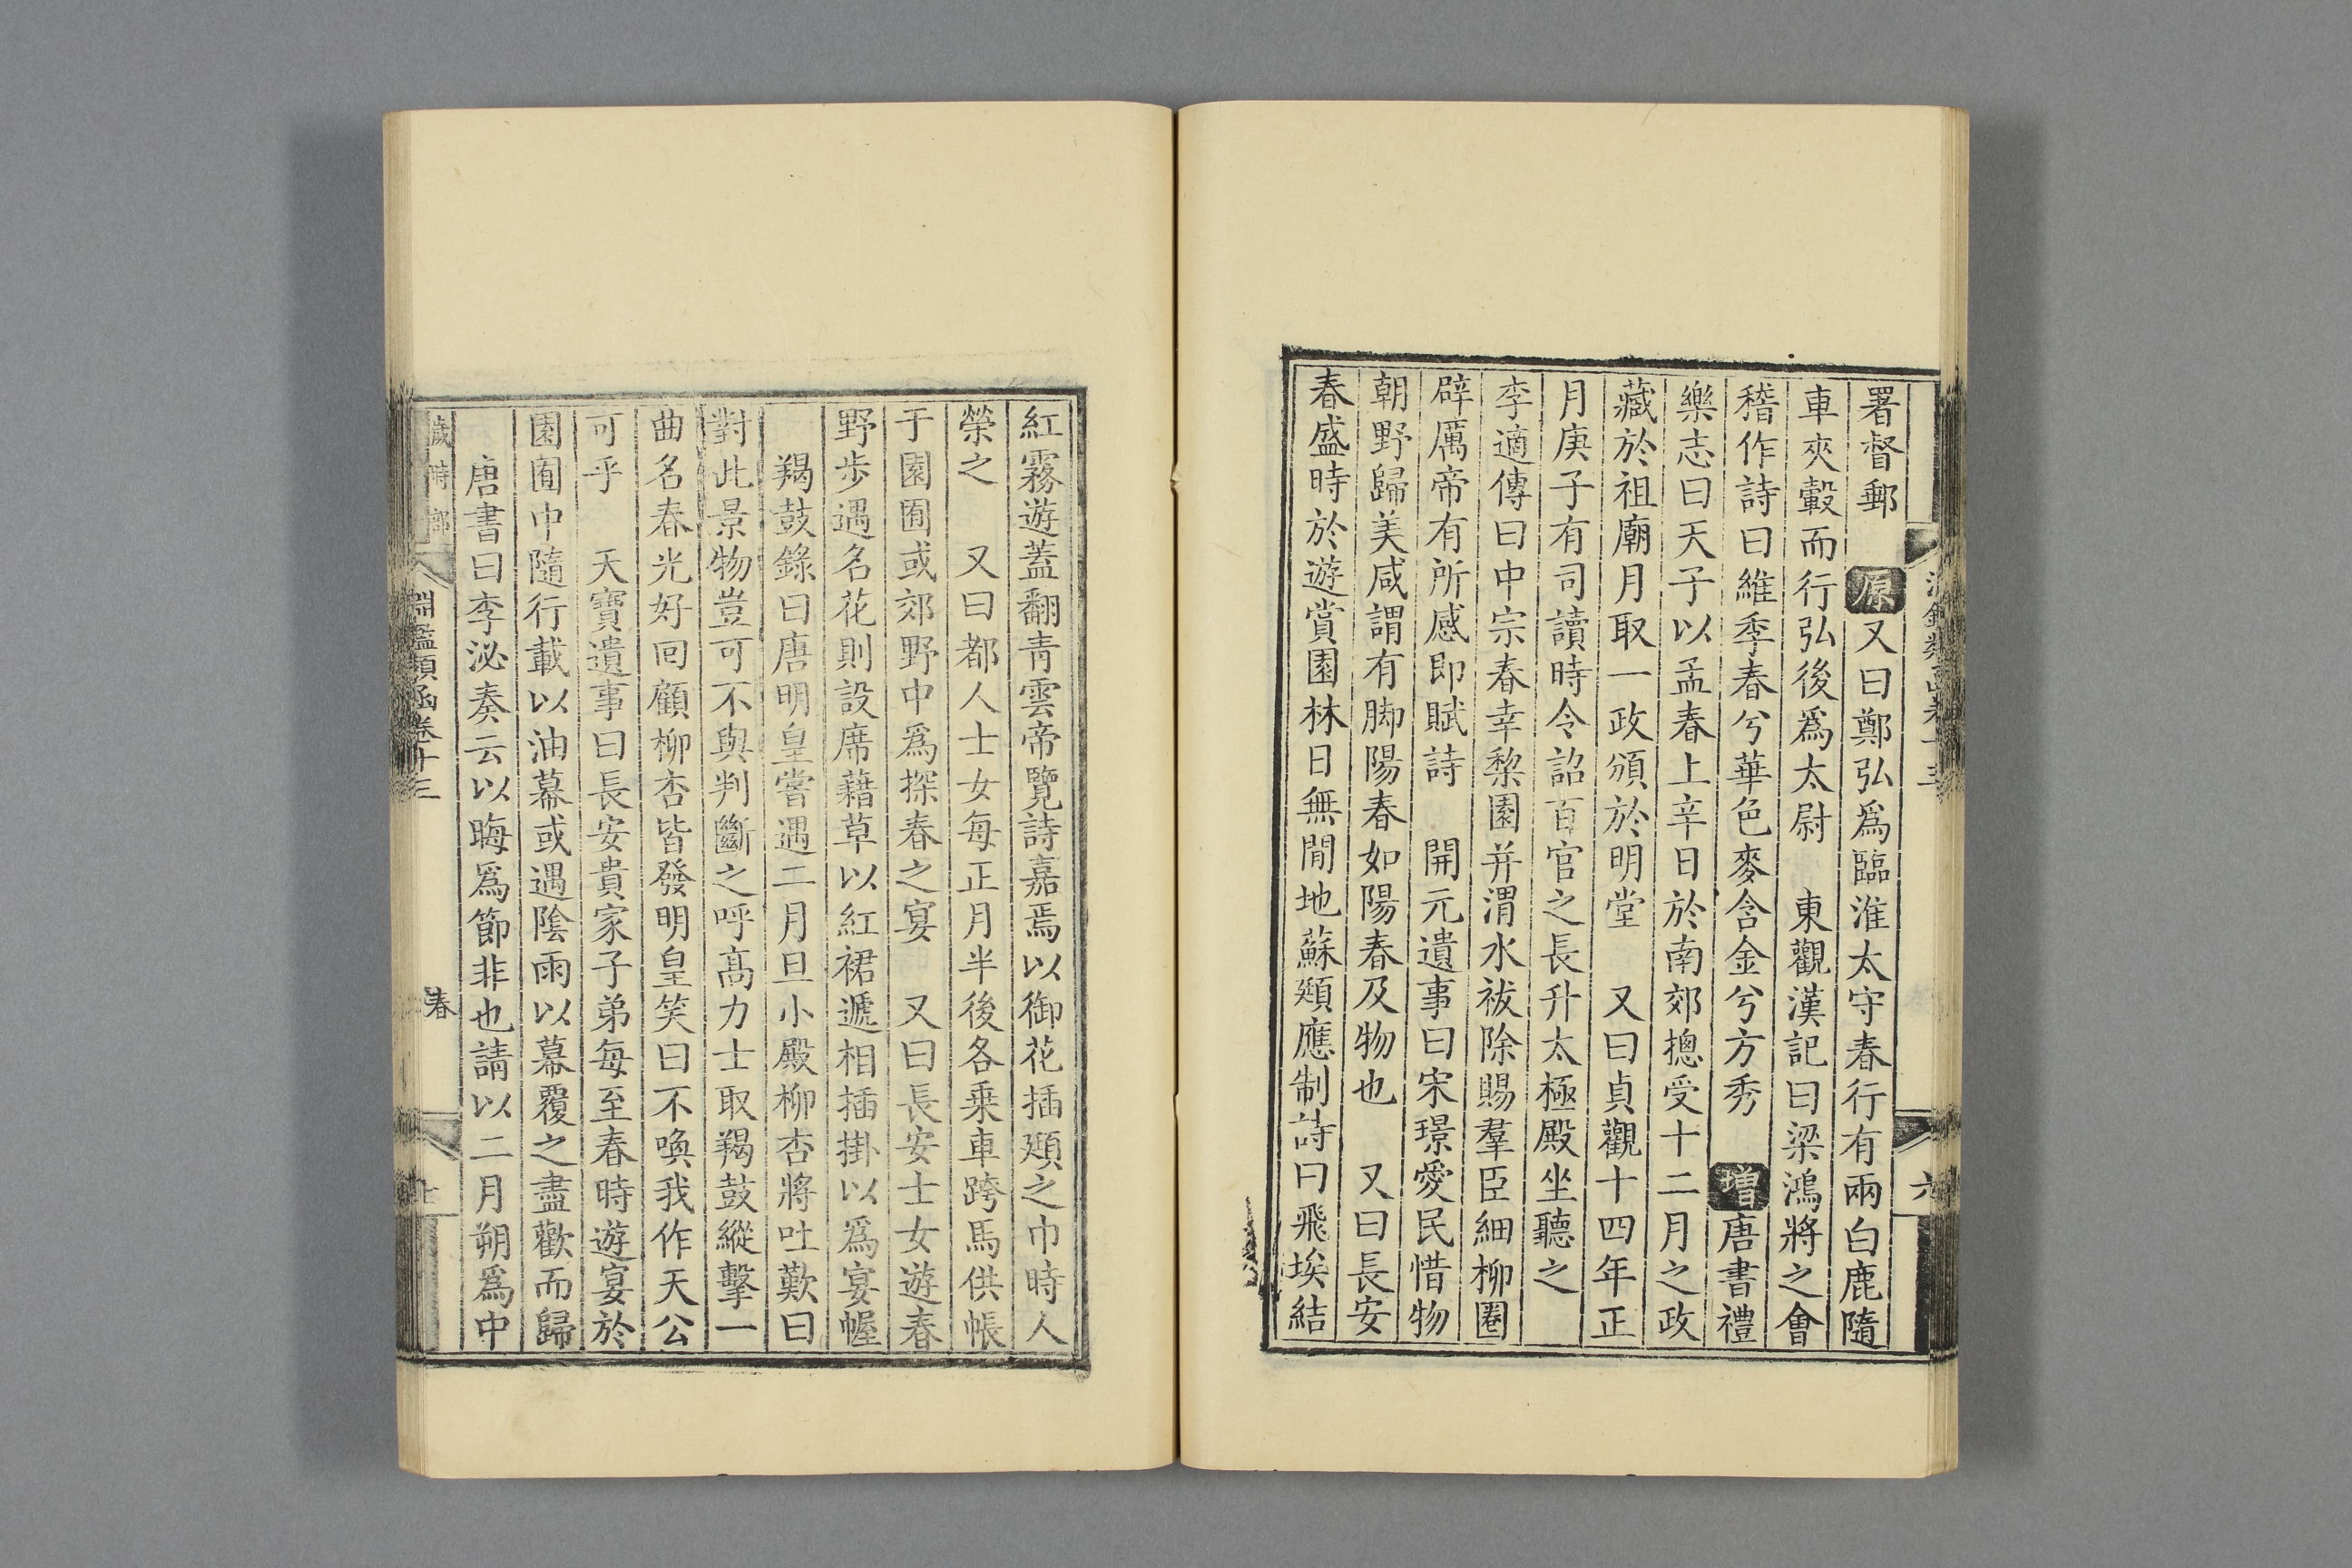 署督郵　原又曰鄭弘爲臨淮太守春行有兩白鹿隨
車夾轂而行弘後爲太尉　東觀漢記曰梁鴻將之會
稽作詩曰維季春兮華色麥含金兮方秀　增唐書禮
樂志曰天子以孟春上辛日於南郊摠受十二月之政
藏於祖廟月取一政頒於明堂　又曰貞觀十四年正
月庚子有司讀時令詔百官之長升太極殿坐聽之
李適傳曰中宗春幸棃園并渭水祓除賜羣臣細柳圈
辟厲帝有所感即賦詩　開元遺事曰宋璟愛民惜物
朝野歸美咸謂有脚陽春如陽春及物也　又曰長安
春盛時於遊賞園林日無閒地蘇頲應制詩曰飛埃結
紅霧遊蓋翻青雲帝覽詩嘉焉以御花插頲之巾時人
榮之　又曰都人士女每正月半後各乗車跨馬供帳
于園囿或郊野中爲探春之宴　又曰長安士女遊春
野步遇名花則設席藉草以紅裙遞相插掛以爲宴幄
羯鼓錄曰唐明皇嘗遇二月旦小殿柳杏將吐歎曰
對此景物豈可不與判斷之呼高力士取羯鼓縱擊一
曲名春光好回顧柳杏皆發明皇笑曰不喚我作天公
可乎　天寶遺事曰長安貴家子弟每至春時遊宴於
園囿中隨行載以油幕或遇陰雨以幕覆之盡歡而歸
唐書曰李泌奏云以晦爲節非也請以二月朔爲中
歲時部　淵鑑類函卷十三　春